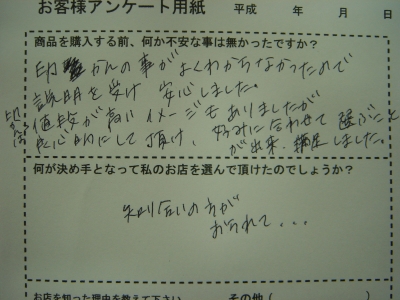 お客様アンケート用紙 平成 年 月 日
商品を購入する前、何か不安な事は無かったですか？
印かんの事がよくわからなかったので
説明を受け 安心しました。
印かんは
値段が高いイメージもありましたが
良心的にして頂け、好みに合わせて選ぶこと
が出来、満足しました。
何が決め手となって私のお店を選んで頂けたのでしょうか？
知り合いの方が
おられて...
お店を知った理由を教えて下さい その他（ ）